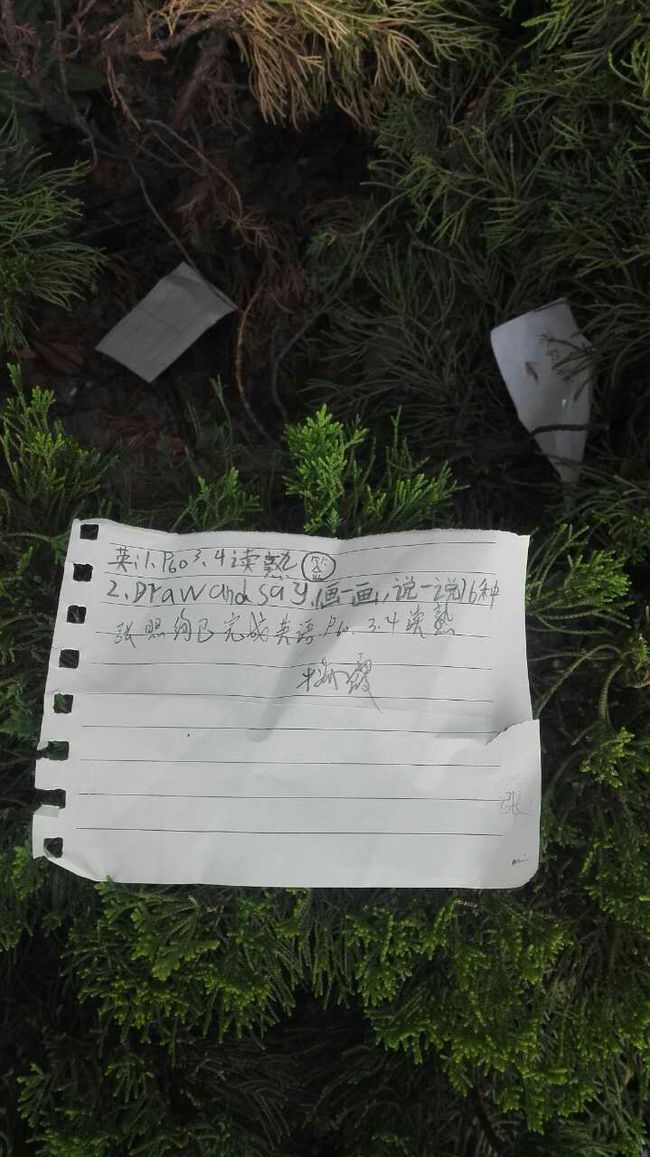 英:1.P60 3.4读熟 签
2.Draw and say,(画一画,说一说)6种
张照绚已完成英语P60、3.4读熟
杨霞
张